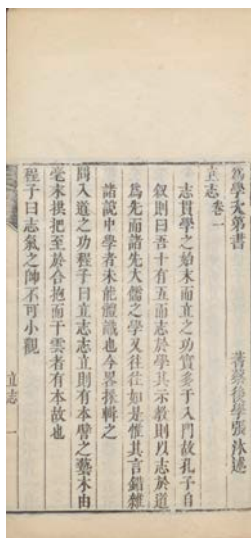 為學次第書　菁蔡後學張沐述
立志卷一
志貫學之始末而立之功實多于入門故孔子自
叙則曰吾十有五而志於學其示教則以志於道
為先而諸先大儒之學又往往如是惟其言錯雜
諸說中學者未能體識也今畧採輯之
問入道之功程子曰立志志立則有本譬之藝木由
毫末拱把至於合抱而干雲者有本故也
程子曰志氣之帥不可小觀
立志　一